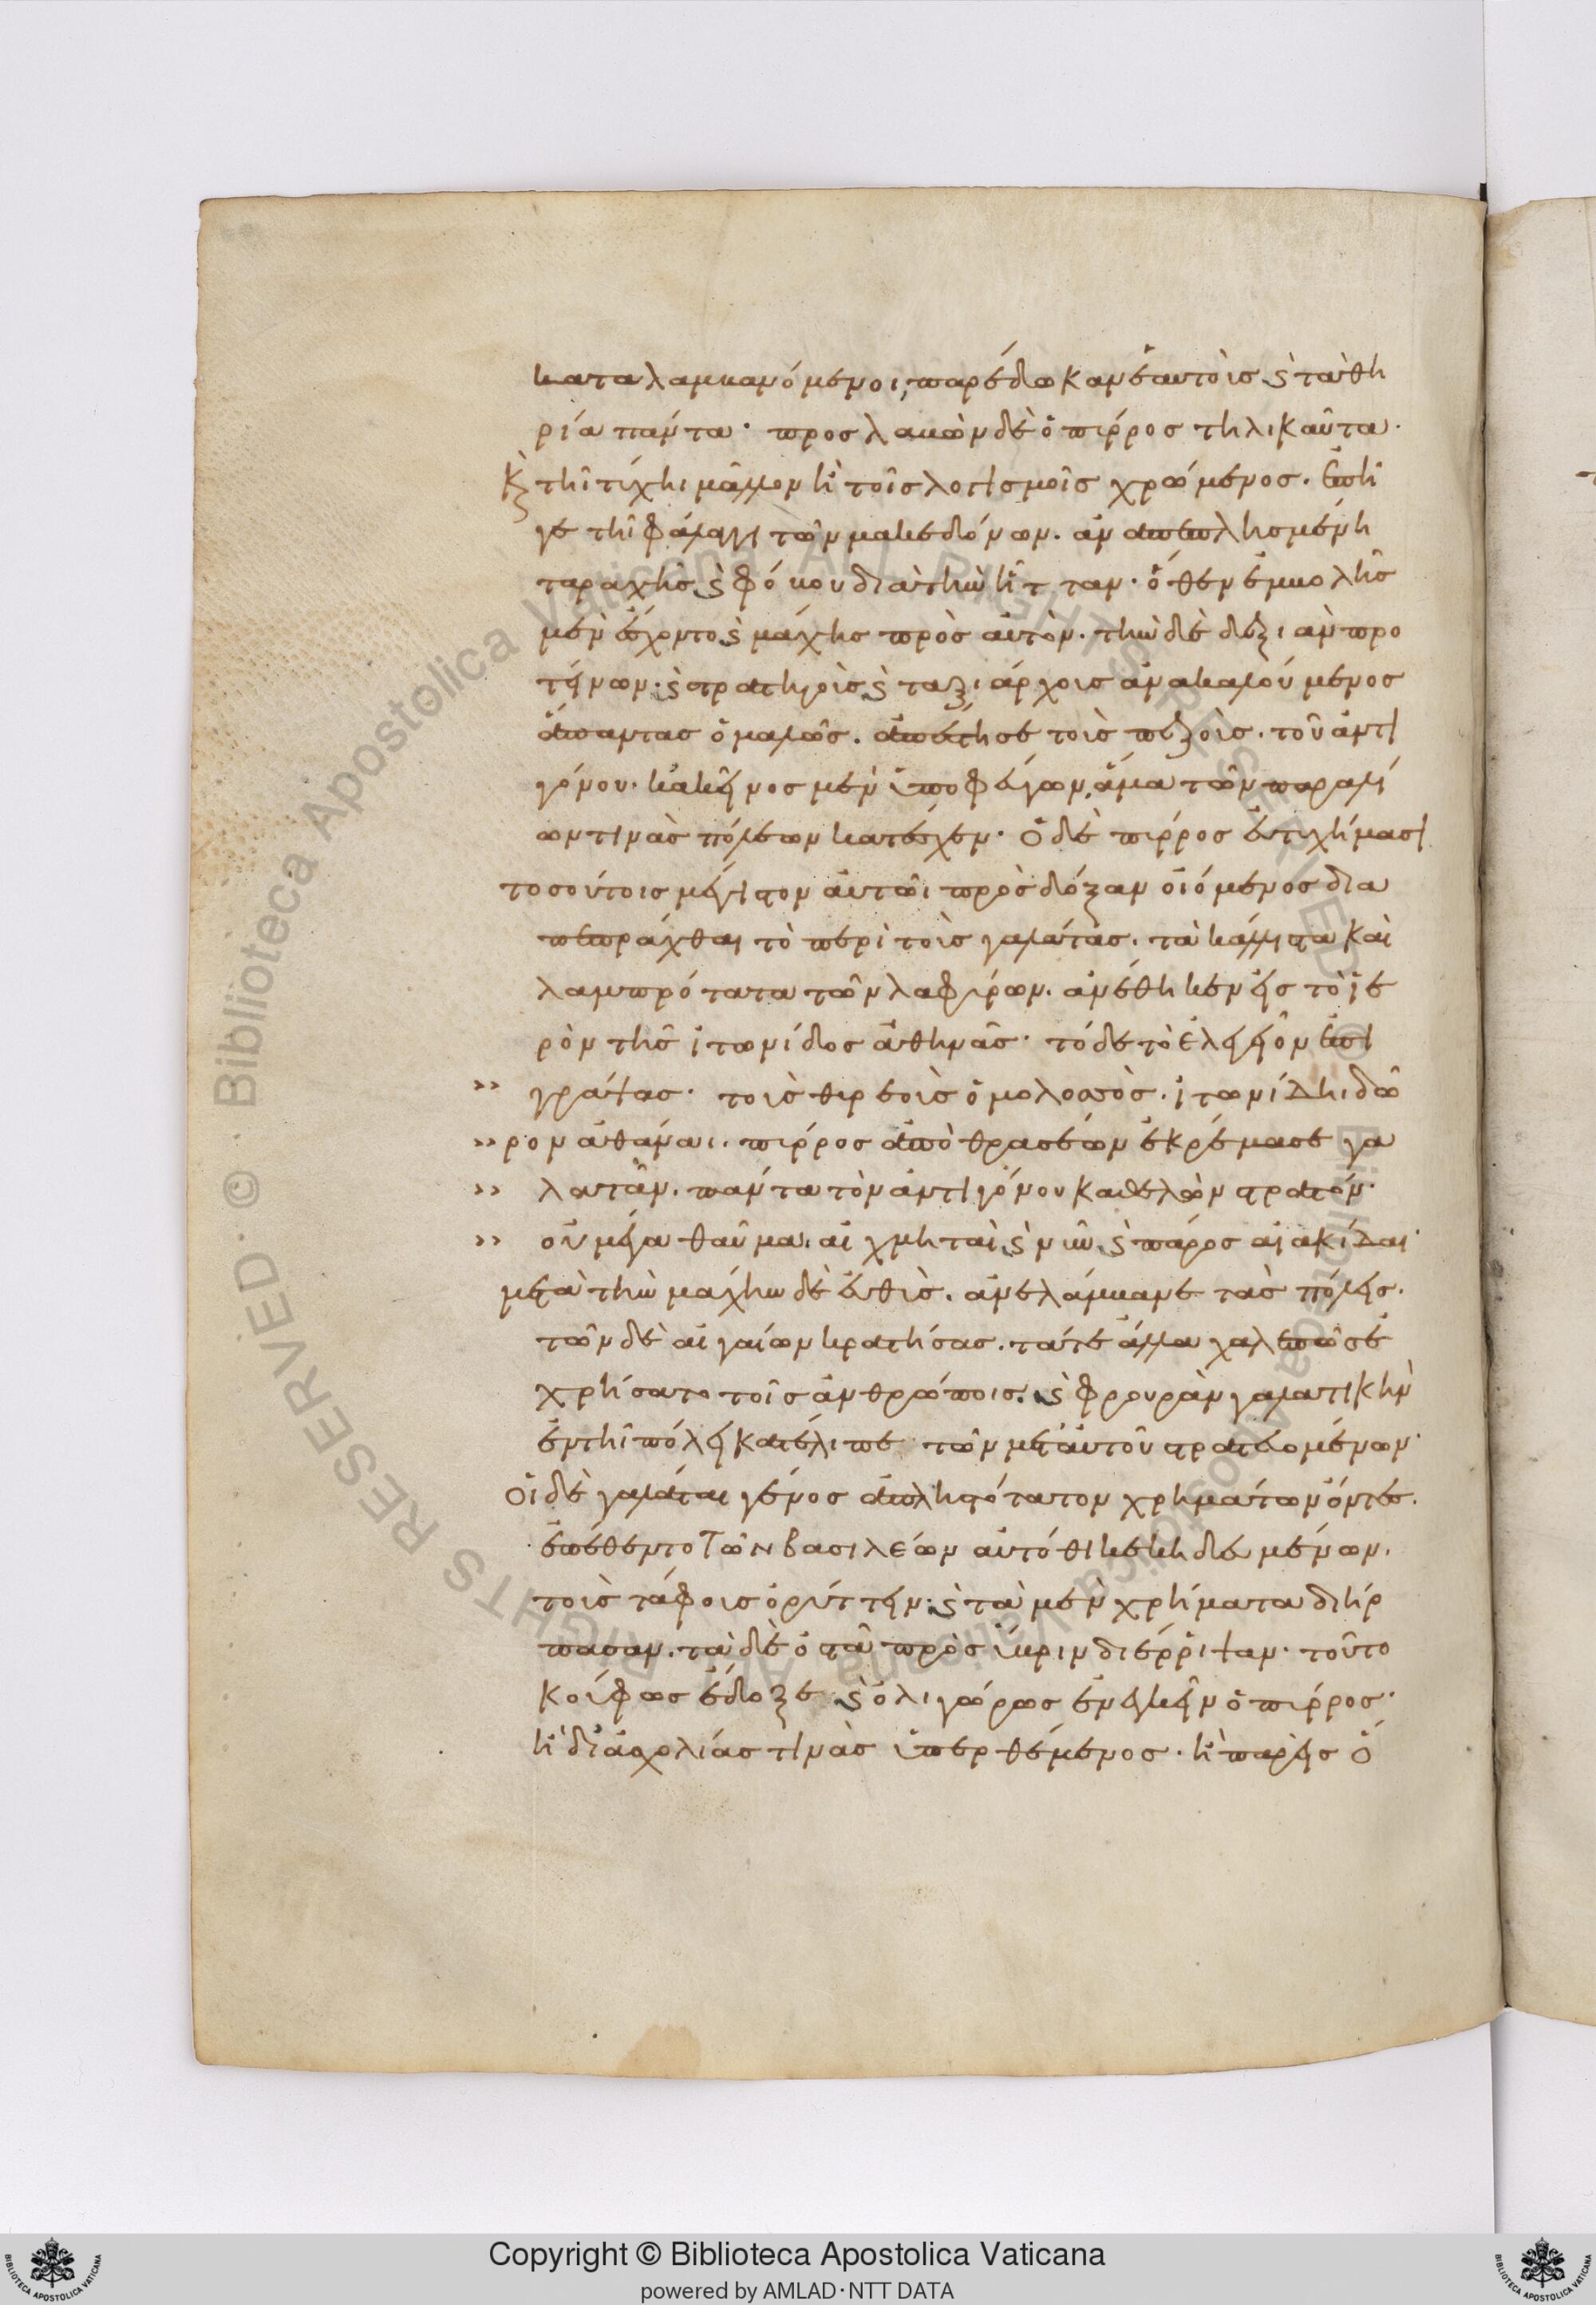 καταλαμβανόμενοι, παρέδωκαν ἑαυτοὺς ϗ τὰ θη
ρία πάντα· προσλαβὼν δὲ ὁ πύρρος τηλικαῦτα·
ϗ τῆι τύχηι μᾶλλον ἢ τοῖς λογισμοῖς χρώμενος. ἐπῄ
γε τῆι φάλαγγι τῶν μακεδόνων. ἀναπεπλησμένη
ταραχῆς ϗ φόβου διὰ τὴν ἧτταν· ὅθεν ἐμβολῆς
μὲν ἔχοντο ϗ μάχης πρὸς αὐτὸν. τὴν δὲ δεξιὰν προ
τείνων· ϗ στρατηγοὺς ϗ ταξιάρχους ἀνακαλούμενος
ἅπαντας ὁμαλῶς. ἀπέστησε τοὺς πεζοὺς. τοῦ ἀντι
γόνου. κἀκεῖνος μὲν ὑποφεύγων, ἅμα τῶν παραλί
ων τινὰς πόλεων κατέσχεν· ὁ δὲ πύρρος εὐτυχήμασι
τοσούτοις μέγιστον αὐτῶι πρὸς δόξαν οἰόμενος δια
πεπράχθαι τὸ περὶ τοὺς γαλάτας. τὰ κάλλιστα καὶ
λαμπρότατα τῶν λαφύρων. ἀνέθηκεν εἰς τὸ ἱε
ρὸν τῆς ἰτωνίδος ἀθηνᾶς· τόδε τὸ ἐλεγεῖον ἐπι
›› γράψας· τοὺς θυρεοὺς ὁ μολοσσὸς. ἰτωνίδηι δῶ
›› ρον ἀθάναι. πύρρος ἀπὸ θρασέων ἐκρέμασε γα
›› λατᾶν. πάντα τὸν ἀντιγόνου καθελὼν στρατόν·
›› οὐ μέγα θαῦμα. αἰχμηταὶ ϗ νῦν ϗ πάρος αἰακίδαι·
μετὰ τὴν μάχην δὲ εὐθὺς. ἀνελάμβανε τὰς πόλεις.
τῶν δὲ αἰγαίων κρατήσας. τά τε ἄλλα χαλεπῶς ἐ
χρήσατο τοῖς ἀνθρώποις. ϗ φρουρὰν γαλατικὴν
ἐν τῆι πόλει κατέλιπε τῶν μετ' αὐτοῦ στρατευομένων·
οἱ δὲ γαλάται γένος ἀπληστότατον χρημάτων ὄντες.
ἐπέθεντο τῶν βασιλέων αὐτόθι κεκηδευμένων.
τοὺς τάφους ὀρύττειν· ϗ τὰ μὲν χρήματα διήρ
πασαν. τὰ δὲ ὀστᾶ πρὸς ὕβριν διέρριψαν. τοῦτο
κούφως ἔδοξε ϗ ὀλιγώρως ἐνεγκεῖν ὁ πύρρος·
ἢ δι' ἀσχολίας τινὰς ὑπερθέμενος. ἢ παρεὶς ὅ
Copyright © Biblioteca Apostolica Vaticana
powered by AMLAD·NTT DATA